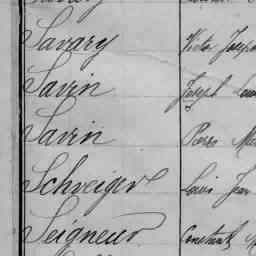 Savary Victor Joseph
Savin Joseph Louis
Savin Pierre
Schveiger Louis Jean
Seigneur Constant